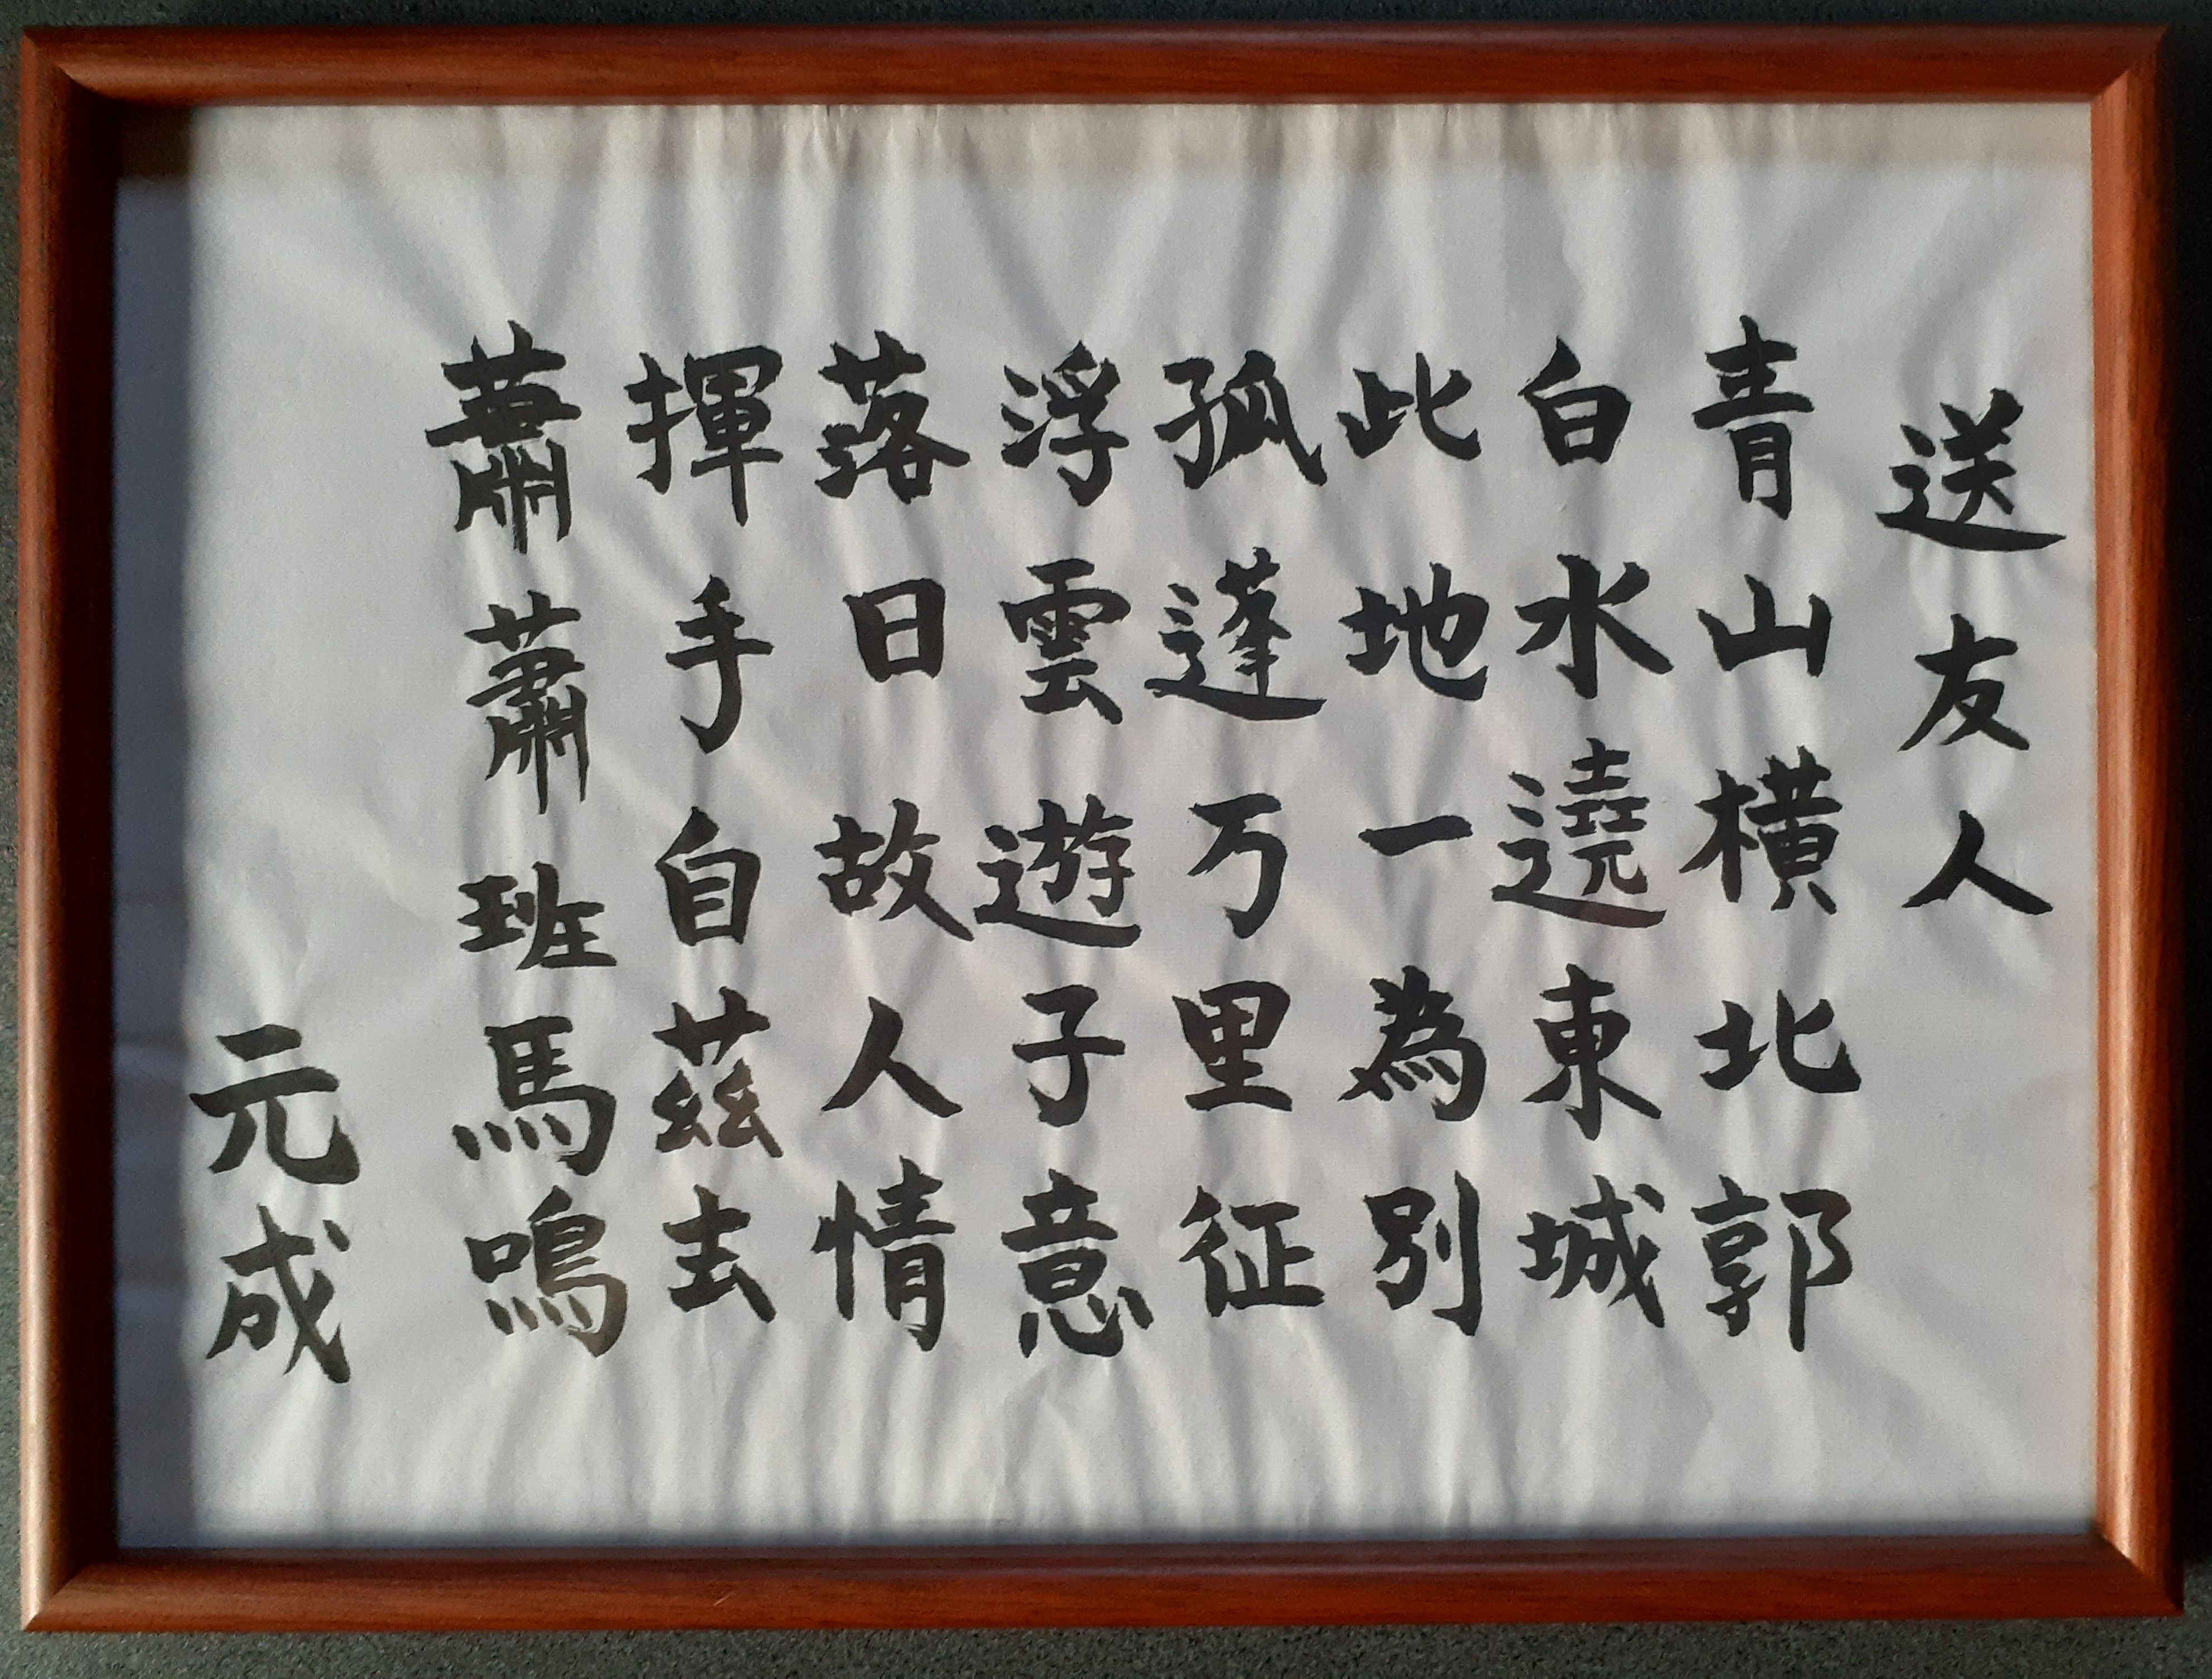 送友人
青山橫北郭
白水遶東城
此地一為別
孤蓬万里征
浮雲遊子意
落日故人情
揮手自茲去
蕭蕭班馬鳴
元成